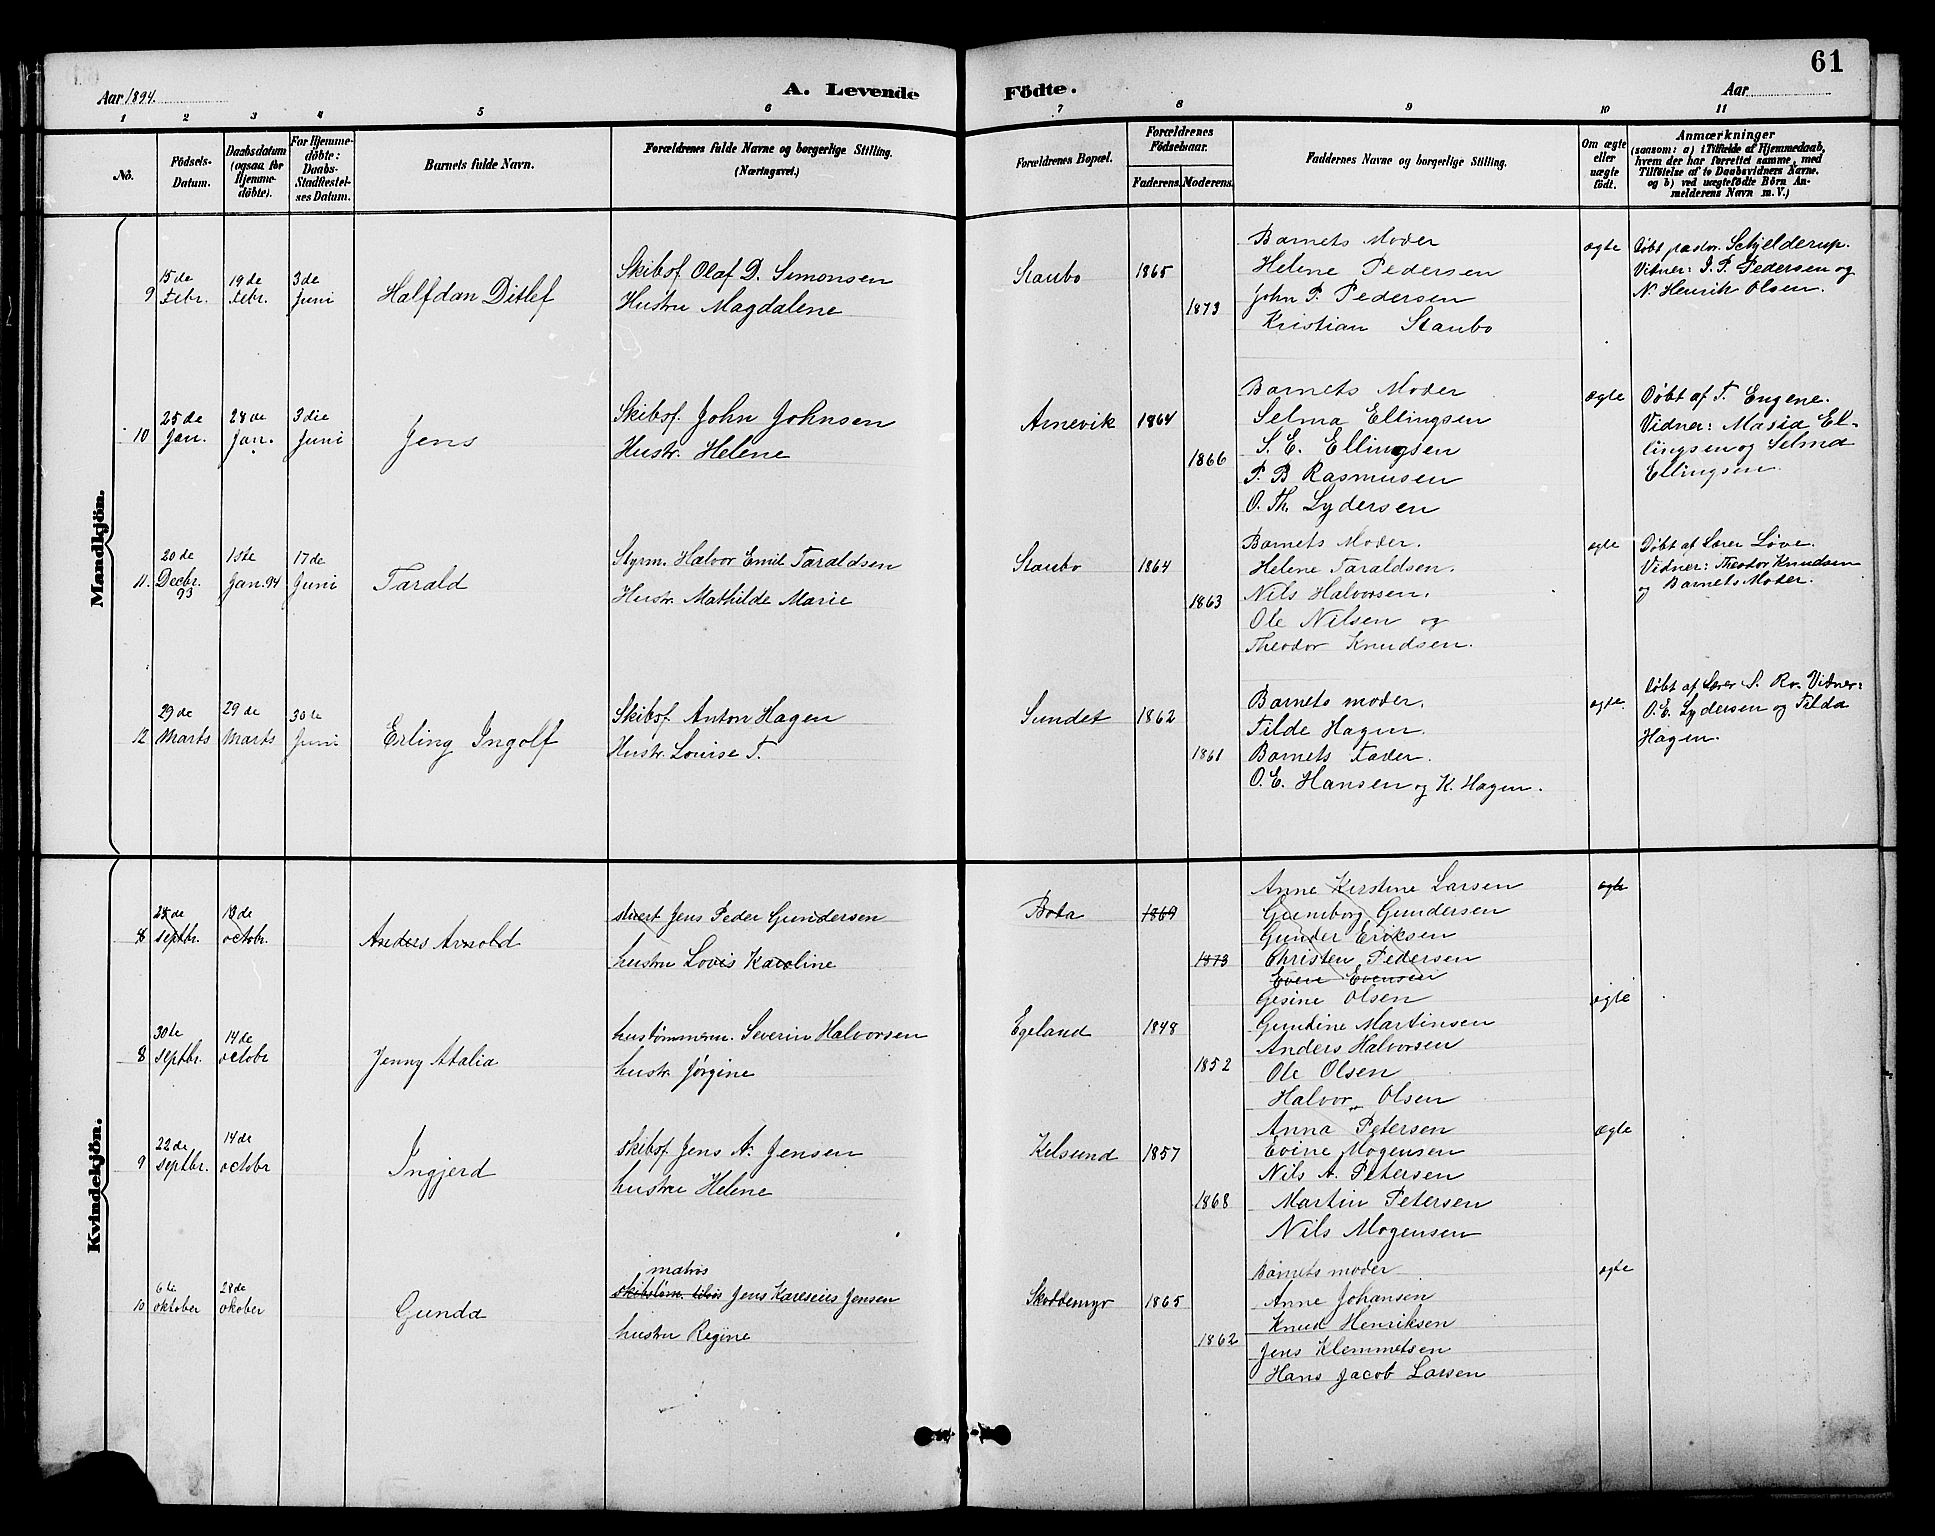 61
Aar 1894.
A. Levende Födte.
Aar
1 2 3 4 5 6 7 8 9 10 11
No.
Födsels-Datum.
Daabsdatum (ogsaa for Hjemmedöbte).
For Hjemmedöbte: Daabs-Stadfæstelses Datum.
Barnets fulde Navn.
Forældrenes fulde Navne og borgerlige Stilling. (Næringsvei.)
Forældrenes Bopæl.
Forældrenes Födselsaar.
Faderens. Moderens.
Faddernes Navne og borgerlige Stilling.
Om ægte eller uægte födt.
Anmærkninger
(saasom: a) i Tilfælde af Hjemmedaab, hvem der har forrettet samme, med Tilföielse af to Daabsvidners Navne. og b) ved uægtefödte Börn Anmelderens Navn m. V.)
Mandkjön.
9
15de Febr.
19de Febr.
3de Juni
Halfdan Ditlef
Skibsf. Olaf D. Simonsen
Hustru Magdalene
Staubo
1865
1873
Barnets Moder
Helene Pedersen
John P. Pedersen
Kristian Staubo
ægte
Døbt pastor. Schjelderup.
Vidner: J. P. Pedersen og
N. Henrik Olsen.
10
25de Jan.
28de Jan.
3die Juni
Jens
Skibsf. John Johnsen
Hustr. Helene
Arnevik
1864
1866
Barnets Moder
Selma Ellingsen
S. E. Ellingsen
P. B Rasmusen
O. Th. Lydersen
ægte
Døbt af T. Eugene.
Vidner: Masia El-
lingsen og Selma
Ellingsen.
11.
20de Decbr. 93
1ste Jan. 94
17de Juni
Tarald
Styrm. Halvor Emil Taraldsen
Hustr. Mathilde Marie
Staubo
1864
1863
Barnets Moder.
Helene Taraldsen.
Nils Halvorsen.
Ole Nilsen og
Theodor Knudsen.
ægte
Døbt af Lærer Løve.
Vidner: Theodor Knudsen
og Barnets Moder.
12
29de Marts
29de Marts
30te Juni
Erling Ingolf
Skibsf. Anton Hagen
Hustr. Louise T.
Sundet
1862
1861
Barnets moder.
Tilde Hagen.
Barnets Fader.
O. E. Hansen og K. Hagen.
ægte
Døbt af Lærer S. Ro. Vidner:
O. E. Lydersen og Tilda
Hagen.
Kvindekjön.
8
25de septbr.
13de octobr.
Anders Arnold
Jens Peder Gundersen
hustru Lovis Karoline
Bota
1869
1873
Anne Kirstine Larsen
Gunneborg Gundersen
Gunder Eriksen
Christen Pedersen
Even Evensen
ægte
8
30te septbr.
14de octobr
Jenny Atalia
hustømmerm. Severin Halvorsen
hustr. Jørgine
Egeland
1848
1852
Gesine Olsen
Gundine Martinsen
Anders Halvorsen
Ole Olsen
Halvor Olsen
ægte
9
22de septbr.
14de octobr
Ingjerd
skibsf. Jens A. Jensen
hustru Helene
Kilsund
1857
1868
Anna Petersen
Evine Mogensen
Nils A. Petersen
Martin Petersen
Nils Mogensen
ægte
10
6te oktober
28de okober
Gunda
matros
Jens Kareseius Jensen
hustru Regine
Skoddemyr
1865
1862
Barnets moder
Anne Johansen
Knud Henriksen
Jens Klemmetsen
Hans Jacob Larsen
ægte